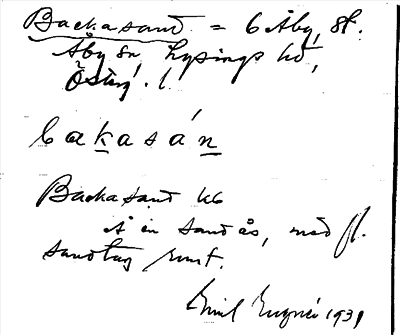 Backasand = 6 Åby, St.
Åby sn, Lysings hd,
Östg. l.
bakasán
Backasand
är en sandås, med fl.
sandtag runt.
Emil 1931